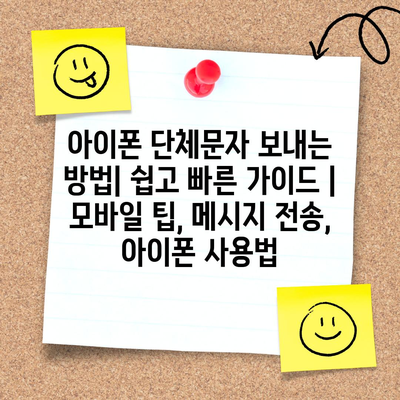 아이폰 단체문자 보내는
방법| 쉽고 빠른 가이드 |
모바일 팁, 메시지 전송,
아이폰 사용법